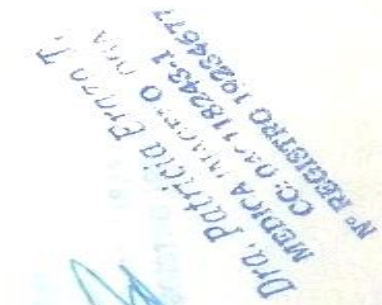 Dra. Patricia Erazo T.
MEDICA
CC: 118243-1
Nº REGISTRO 19234677